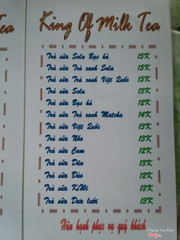 King Of Milk Tea
Trà sữa Sola Bạc hà 15K
Trà sữa Trà xanh Sola 15K
Trà sữa Trà xanh Việt Quốc 15K
Trà sữa Sola 13K
Trà sữa Bạc hà 12K
Trà sữa Trà xanh Matcha 14K
Trà sữa Việt Quốc 13K
Trà sữa Nho 13K
Trà sữa Cam 12K
Trà sữa Dâu 13K
Trà sữa Dừa 12K
Trà sữa KiWi 13K
Trà sữa Dưa lưới 13K
Hân hạnh phục vụ quý khách